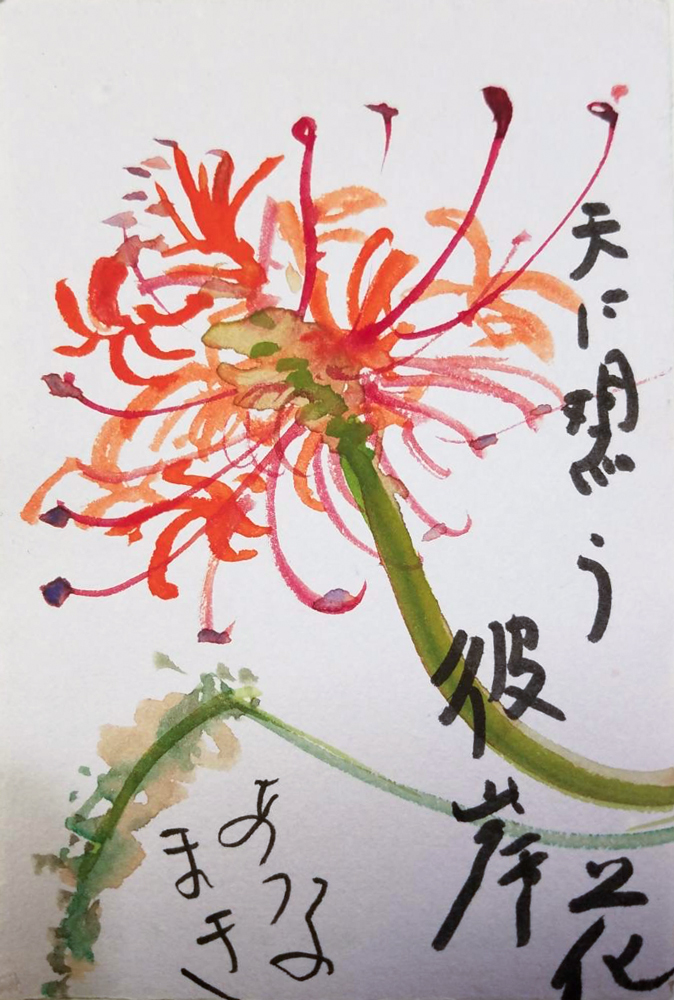 天に想う
彼岸花
あつみ
まき